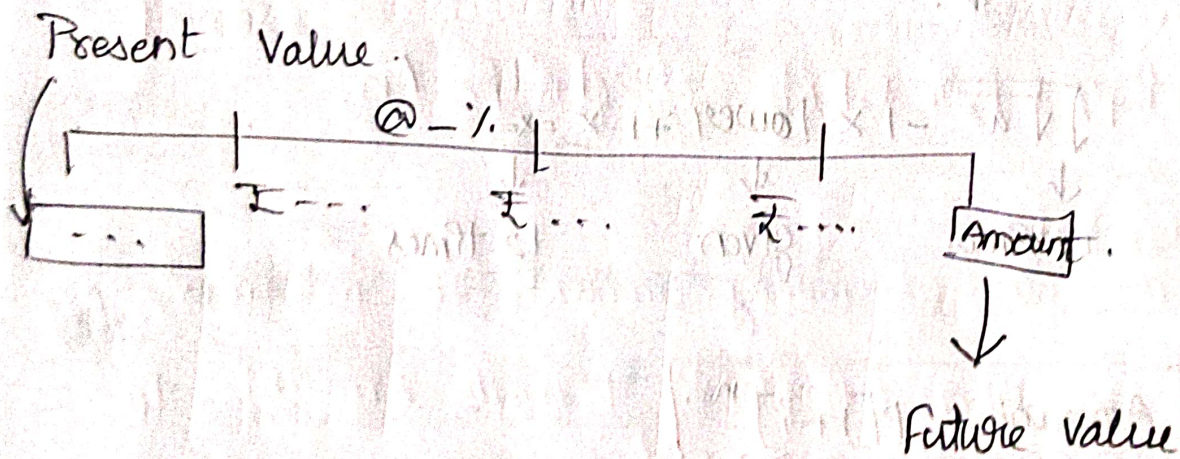 Present Value.
@ _ %
- - .
₹ - - - .
₹ . . .
₹ . . . .
Amount.
Future Value